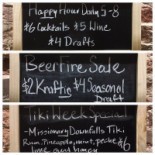 Happy Hour Daily 5-8
$6 Cocktails $5 Wine
$4 Drafts
Beer Fire Sale
$2 Knotfig $4 Seasonal
Draft
Tiki Week Special
- Missionary Downfalls Tiki
Rum, Pineapple, mint, peche
lime and honey $6